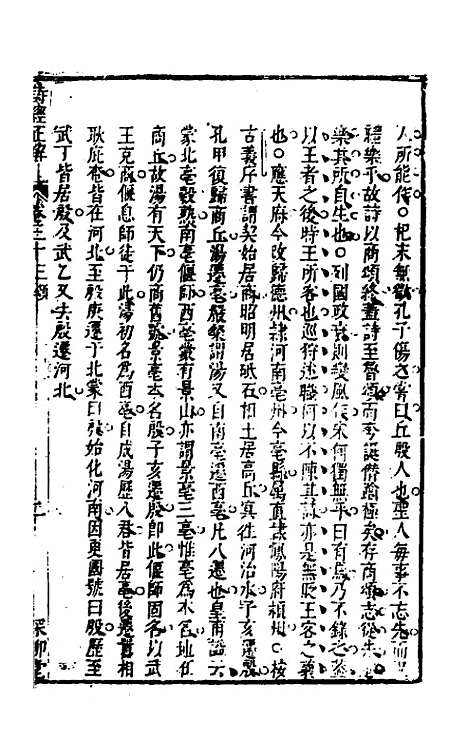 人所能作○杞宋無徵孔子傷之寄曰丘殷人也聖人每事不忘先而况
禮樂乎故詩以商頌終盡詩至魯頌而夸誕僭踰極矣存商頌志從先
樂其所自生也○列國政衰則變風作宋何獨無乎曰有焉乃不錄之蓋
以王者之後時王所客也巡狩述職何以不陳其詩亦是無貶王客之義
也○應天府今改歸德州隷河南亳州今亳縣屬直隷鳳陽府潁州○按
古義序書謂契始居商昭明居砥石相土居商丘冥往河治水子亥遷殷
孔甲復歸商丘湯遷亳殷槃謂湯又自南亳遷西亳凡八遷也皇甫謐云
蒙北亳穀熟南亳偃師西亳蒙有景山亦謂景亳三亳惟亳為水名地在
商丘故湯有天下仍商舊號景亳本名殷子亥遷殷即此偃師因名以武
王克商偃息師徒于此湯初名為西亳自成湯歷八君皆居亳後遷囂相
耿庇奄皆在河北至殷庚遷于北蒙曰殷始化河南因更國號曰殷歷至
武丁皆居殷及武乙又去殷遷河北
詩經正解
卷三十三 頌
深柳堂